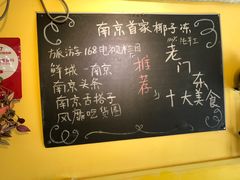 南京首家椰子冻
旅游168电视栏目
鲜城一南京
南京头条
南京吉搭子
风靡吃货圈
"推荐"
老门东
十大美食